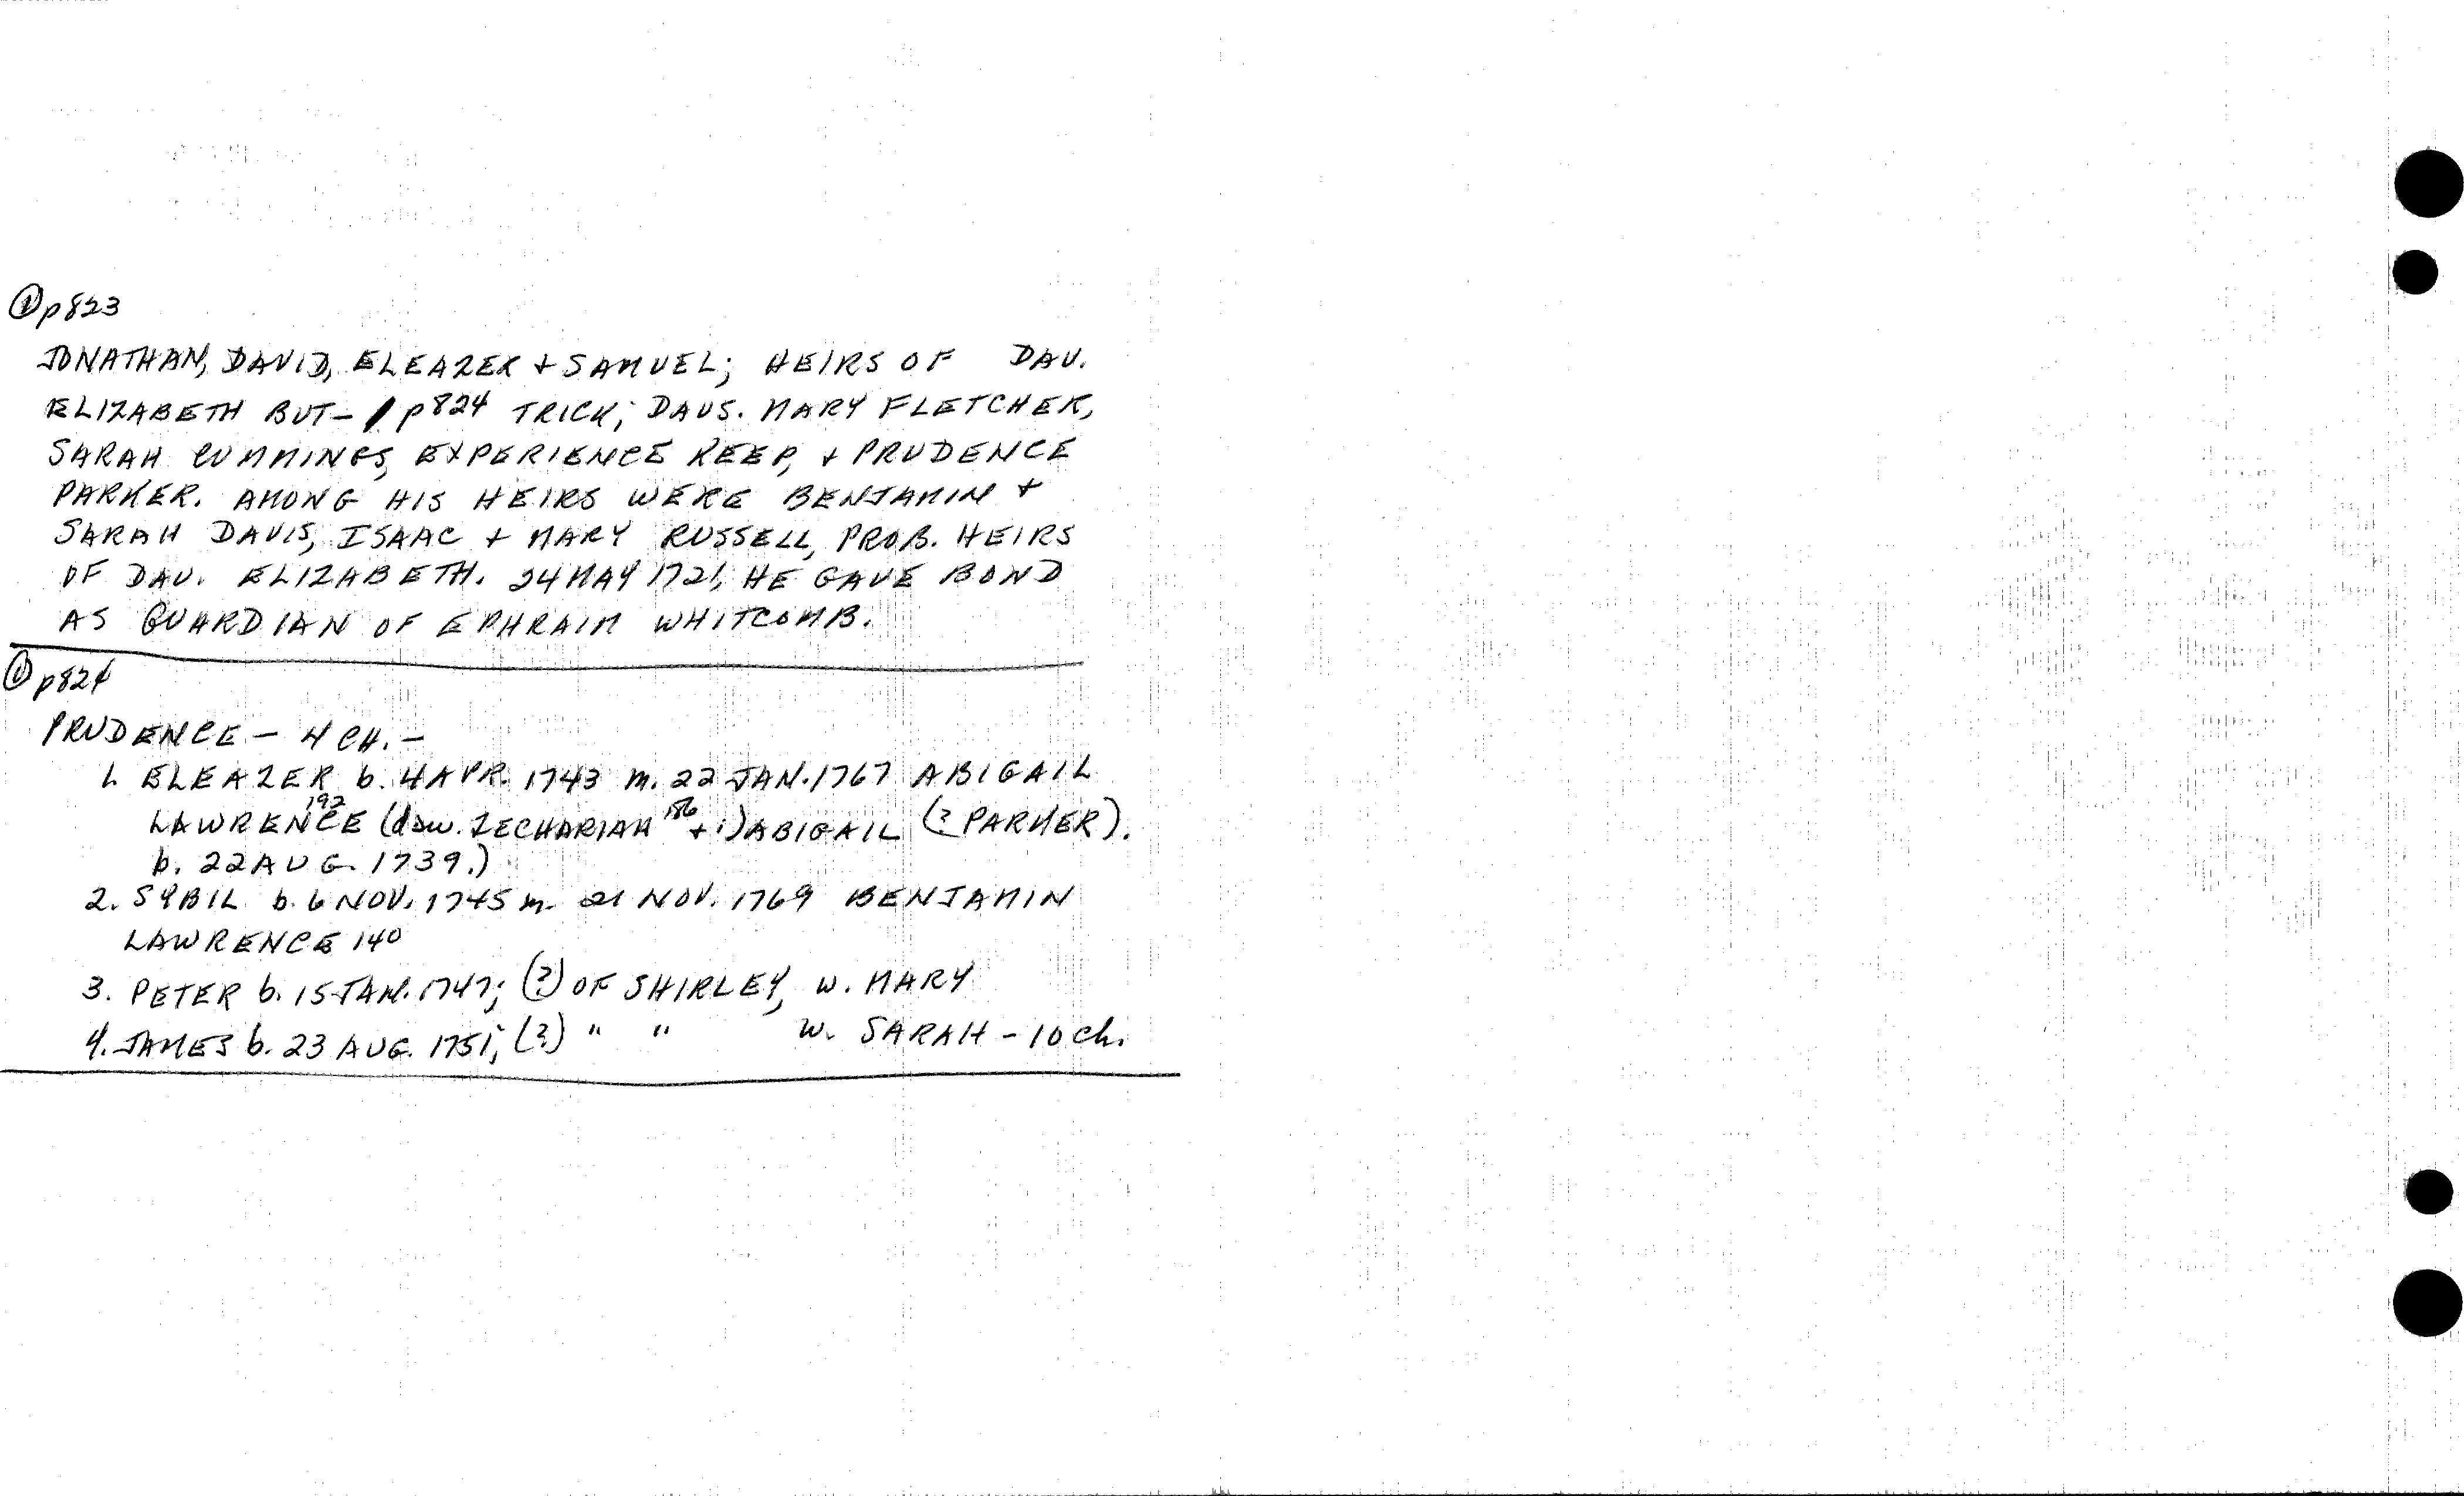 ① p823
JONATHAN, DAVID, ELEAZER + SAMUEL; HEIRS OF DAU.
ELIZABETH BUT- / p824 TRICK; DAUS. MARY FLETCHER,
SARAH CUMMINGS, EXPERIENCE KEEP, + PRUDENCE
PARKER. AMONG HIS HEIRS WERE BENJAMIN +
SARAH DAVIS, ISAAC + MARY RUSSELL, PROB. HEIRS
OF DAU. ELIZABETH. 24 MAY 1721, HE GAVE BOND
AS GUARDIAN OF EPHRAIM WHITCOMB.
① p824
PRUDENCE - 4 CH. -
1. ELEAZER b. 4 APR. 1743 m. 22 JAN. 1767 ABIGAIL
LAWRENCE 192 (dau. ZECHARIAH 186 + ABIGAIL (? PARKER).
b. 22 AUG. 1739.)
2. SYBIL b. 6 NOV. 1745 m. 21 NOV. 1769 BENJAMIN
LAWRENCE 140
3. PETER b. 15 JAN. 1747; (?) OF SHIRLEY, W. MARY
4. JAMES b. 23 AUG. 1751; (?) " " W. SARAH - 10 ch.